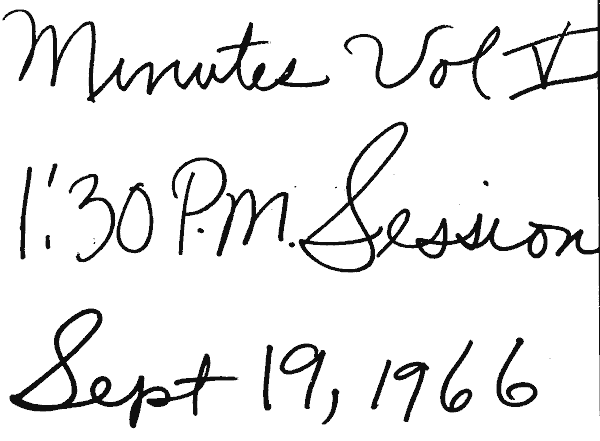 Minutes Vol V
1:30 P.M. Session
Sept 19, 1966